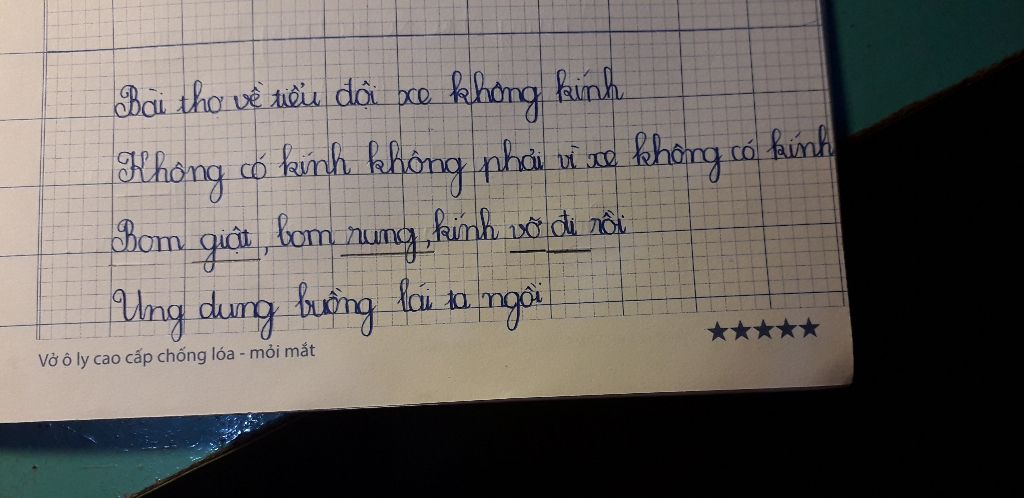 Bài thơ về tiểu đội xe không kính
Không có kính không phải vì xe không có kính
Bom giật, bom rung, kính vỡ đi rồi
Ung dung buồng lái ta ngồi
★★★★★
Vở ô ly cao cấp chống lóa - mỏi mắt